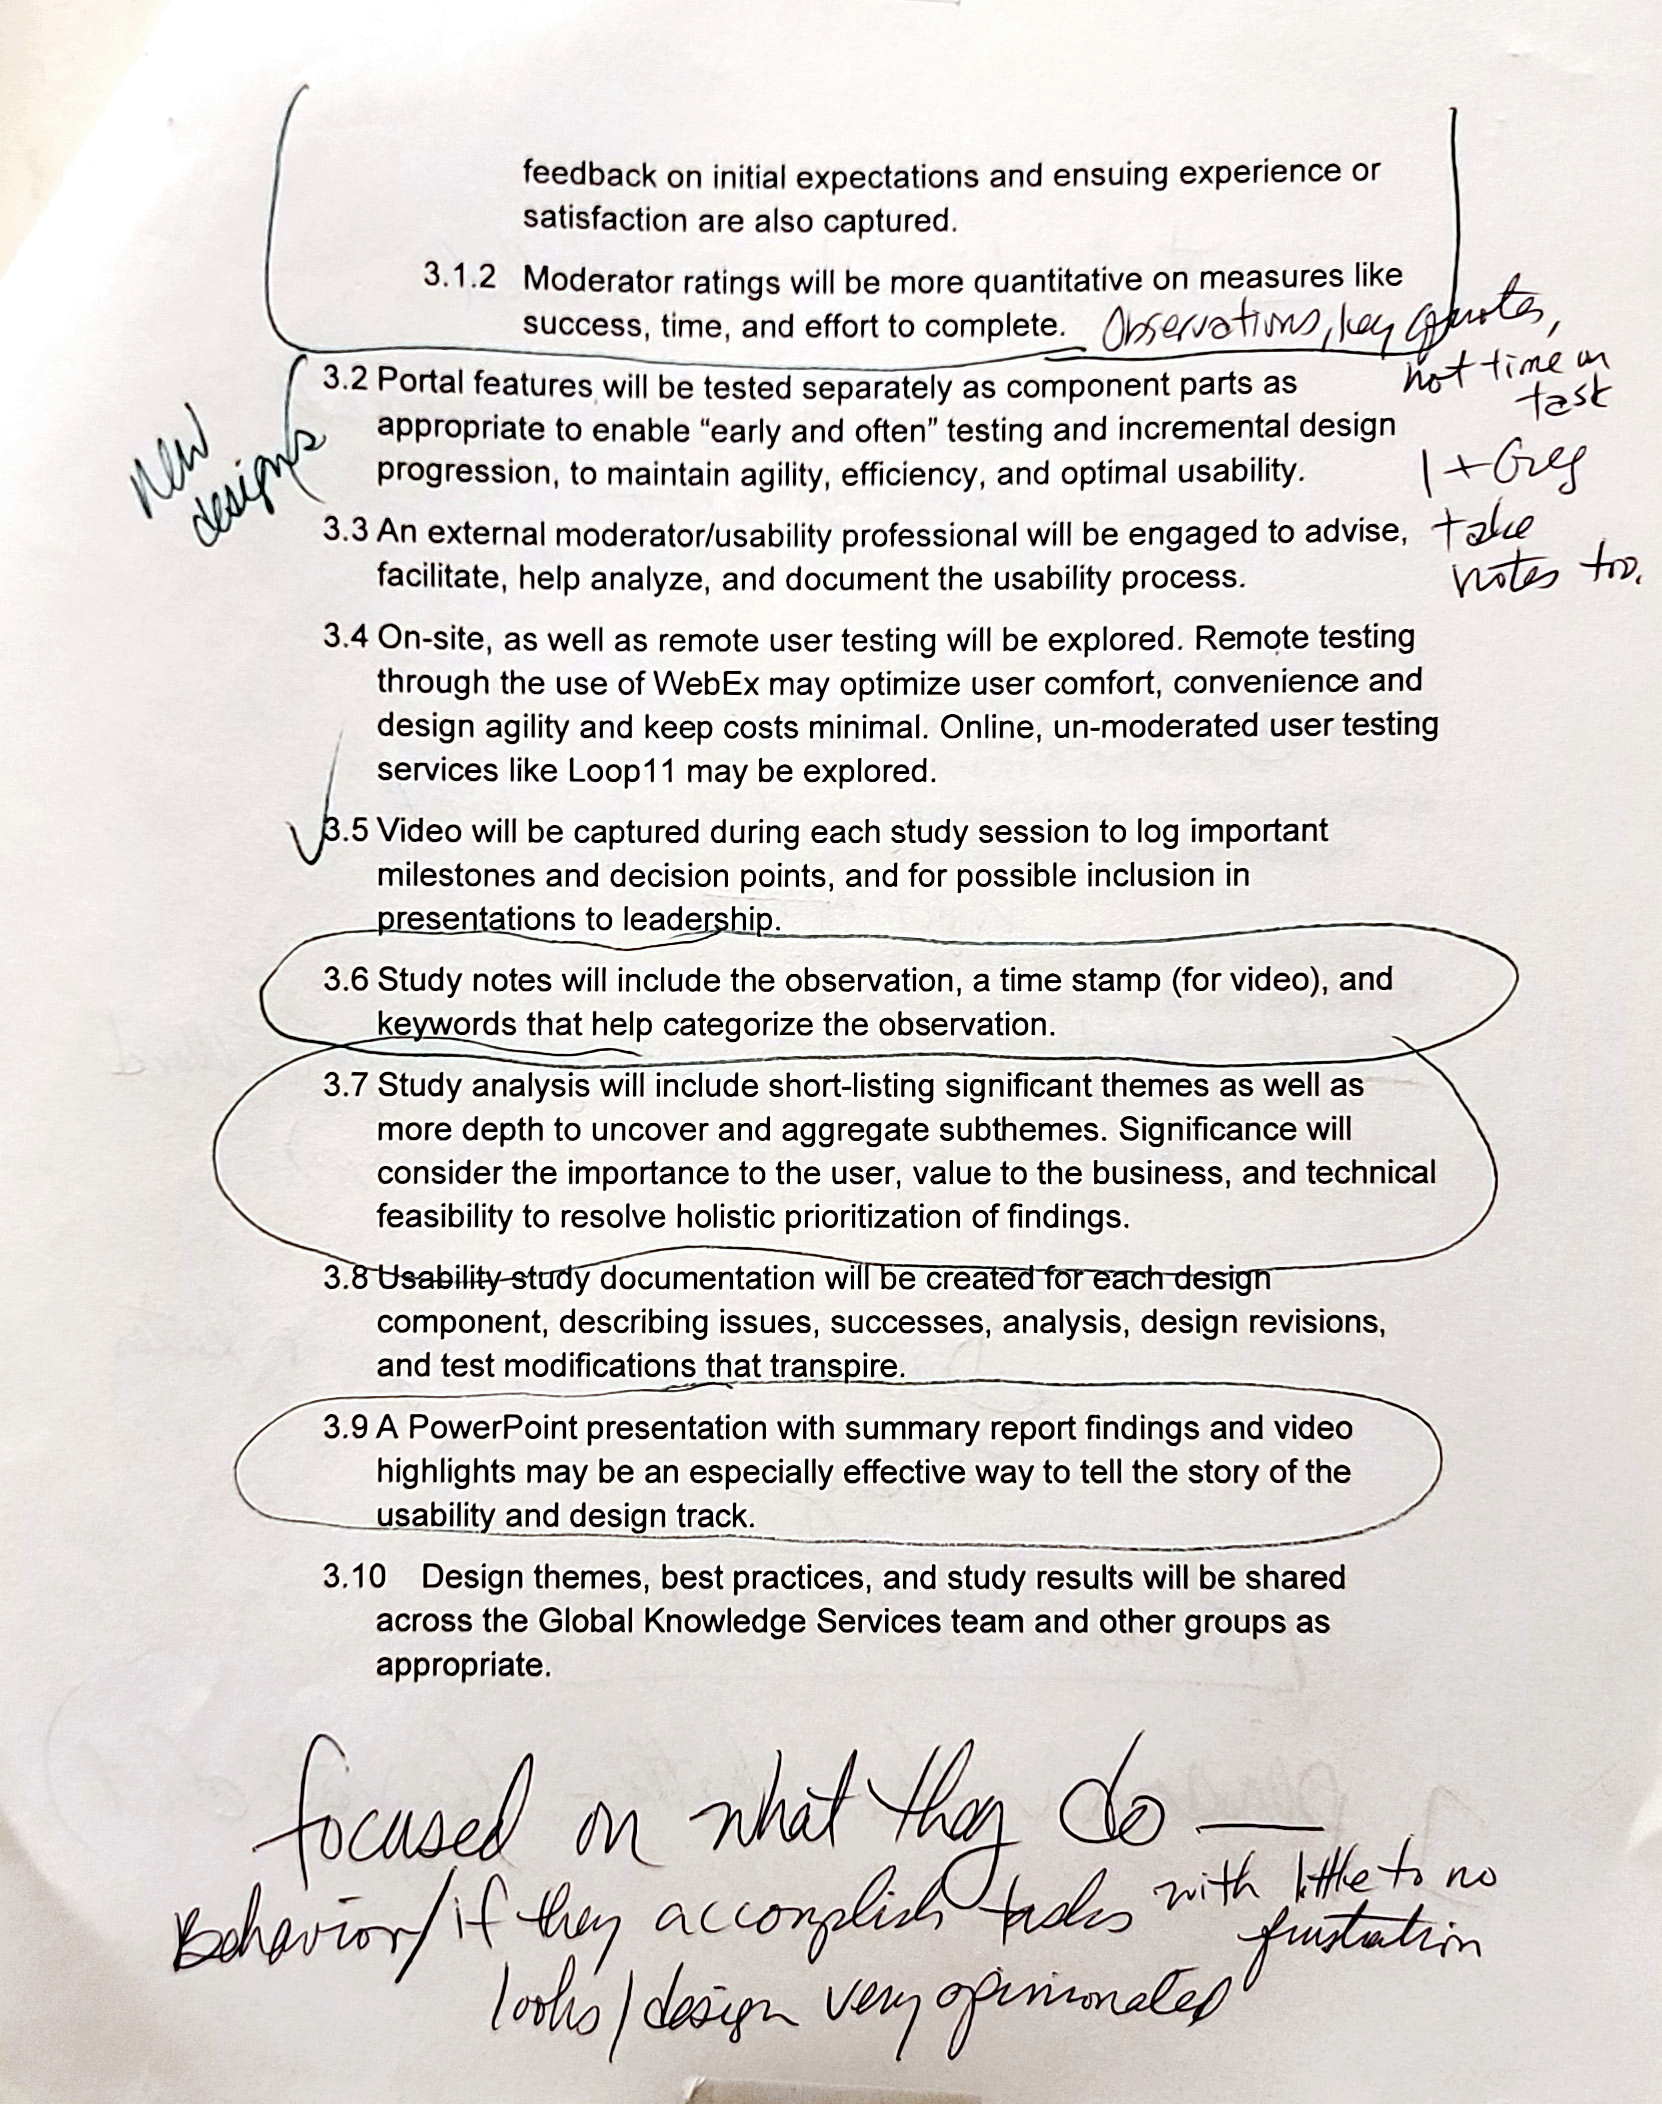 feedback on initial expectations and ensuing experience or
satisfaction are also captured.
3.1.2 Moderator ratings will be more quantitative on measures like
success, time, and effort to complete.
Observations, key quotes,
not time on
task
1 + Greg
take
notes too.
new
designs
3.2 Portal features will be tested separately as component parts as
appropriate to enable “early and often” testing and incremental design
progression, to maintain agility, efficiency, and optimal usability.
3.3 An external moderator/usability professional will be engaged to advise,
facilitate, help analyze, and document the usability process.
3.4 On-site, as well as remote user testing will be explored. Remote testing
through the use of WebEx may optimize user comfort, convenience and
design agility and keep costs minimal. Online, un-moderated user testing
services like Loop11 may be explored.
3.5 Video will be captured during each study session to log important
milestones and decision points, and for possible inclusion in
presentations to leadership.
3.6 Study notes will include the observation, a time stamp (for video), and
keywords that help categorize the observation.
3.7 Study analysis will include short-listing significant themes as well as
more depth to uncover and aggregate subthemes. Significance will
consider the importance to the user, value to the business, and technical
feasibility to resolve holistic prioritization of findings.
3.8 Usability study documentation will be created for each design
component, describing issues, successes, analysis, design revisions,
and test modifications that transpire.
3.9 A PowerPoint presentation with summary report findings and video
highlights may be an especially effective way to tell the story of the
usability and design track.
3.10 Design themes, best practices, and study results will be shared
across the Global Knowledge Services team and other groups as
appropriate.
focused on what they do —
Behavior/if they accomplish tasks with little to no
frustration
looks/design very opinionated